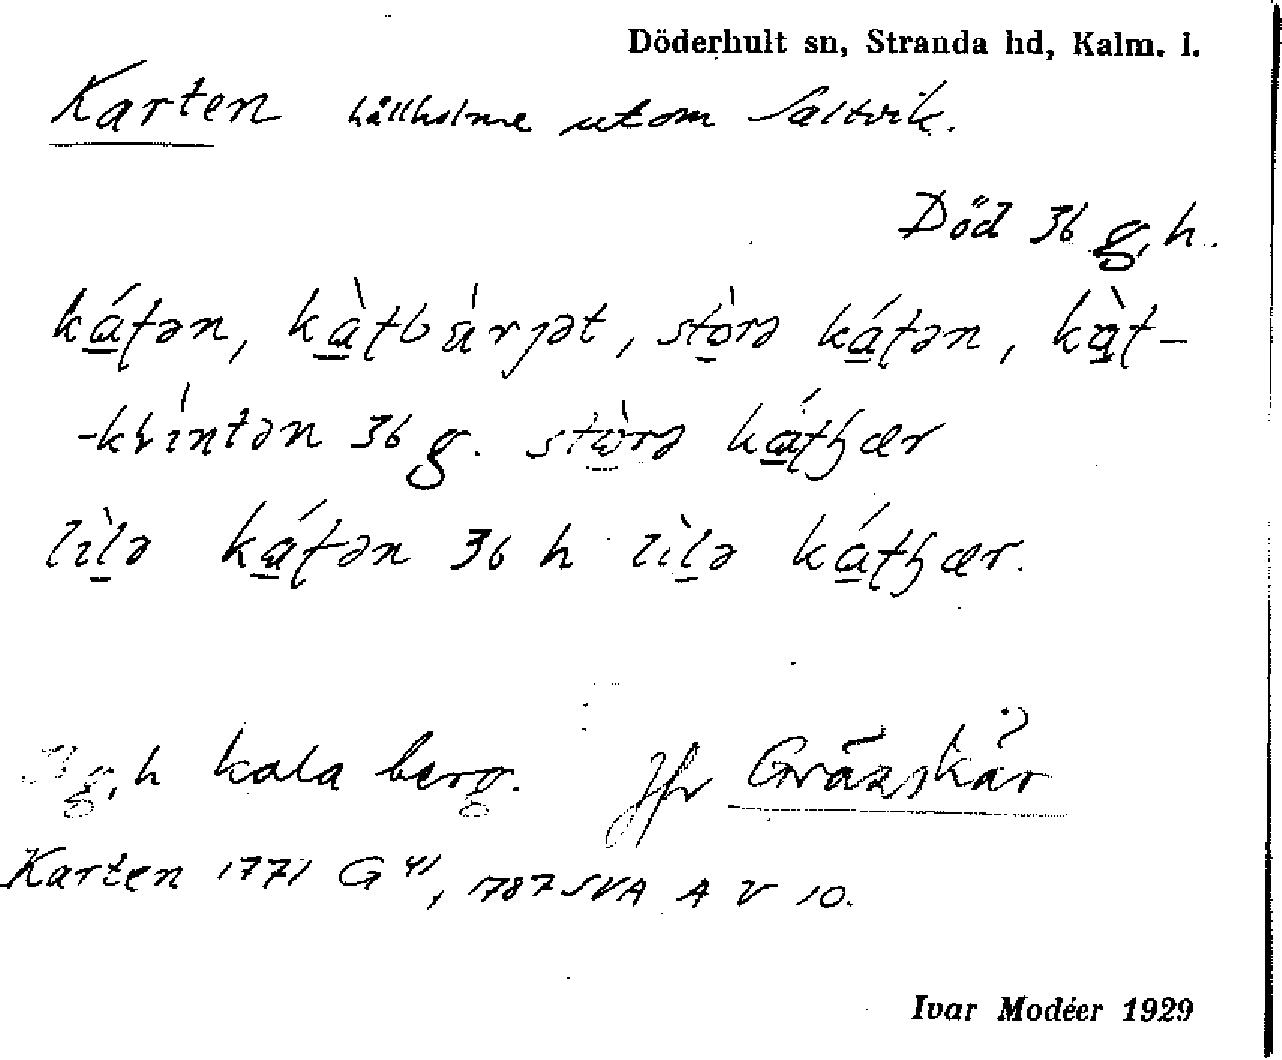 Döderhult sn, Stranda hd, Kalm. l.
Karten hällholme utom Saltvik.
Död 36 g, h.
ká̱ʈən, kà̱ʈbúrjət, stò̱rə ká̱ʈən, kà̱ʈ-
-klíntən 36 g. stò̱rə ká̱ʈʂær
lìḻə ká̱ʈən 36 h lìḻə ká̱ʈʂær.
g, h kala berg. Jfr Grässkär
Karten 1771 G 41, 1787 SVA A V 10.
Ivar Modéer 1929